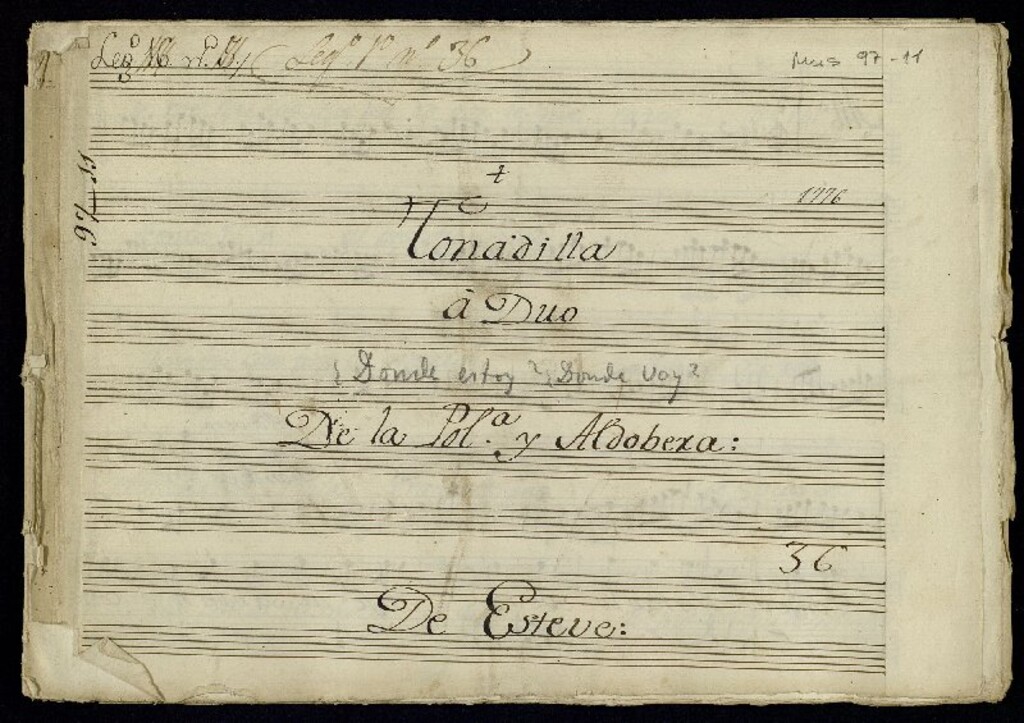 Leg.º 1º nº 36
Mus 97-11
97-11
1776
Tonadilla
à Duo
¿Donde estoy? ¿Donde voy?
De la Pol.ª y Aldobera:
36
De Esteve: